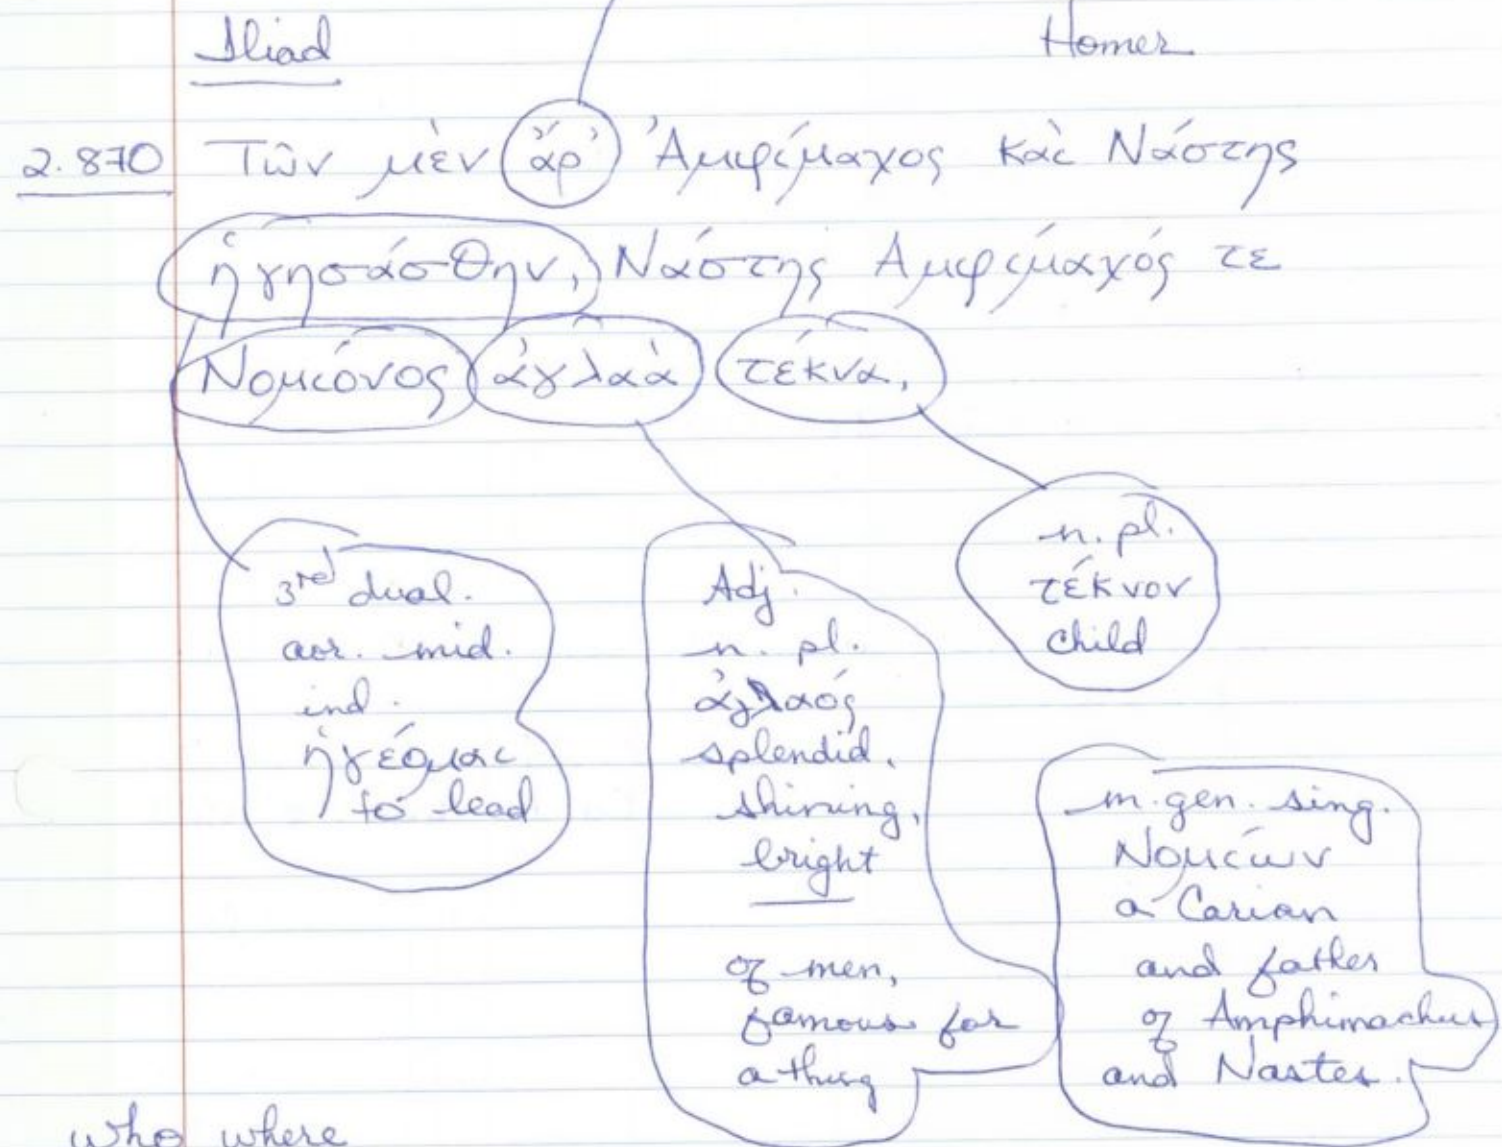 Iliad Homer
2.870 Τῶν μὲν ἄρ' Ἀμφίμαχος καὶ Νάστης
ἡγησάσθην, Νάστης Ἀμφίμαχός τε
Νομίονος ἀγλαὰ τέκνα,
3rd dual.
aor. mid.
ind.
ἡγέομαι
to lead
Adj.
n. pl.
ἀγλαός
splendid,
shining,
bright
of men,
famous for
a thing
n. pl.
τέκνον
child
m. gen. sing.
Νομίων
a Carian
and father
of Amphimachus
and Nastes.
who where